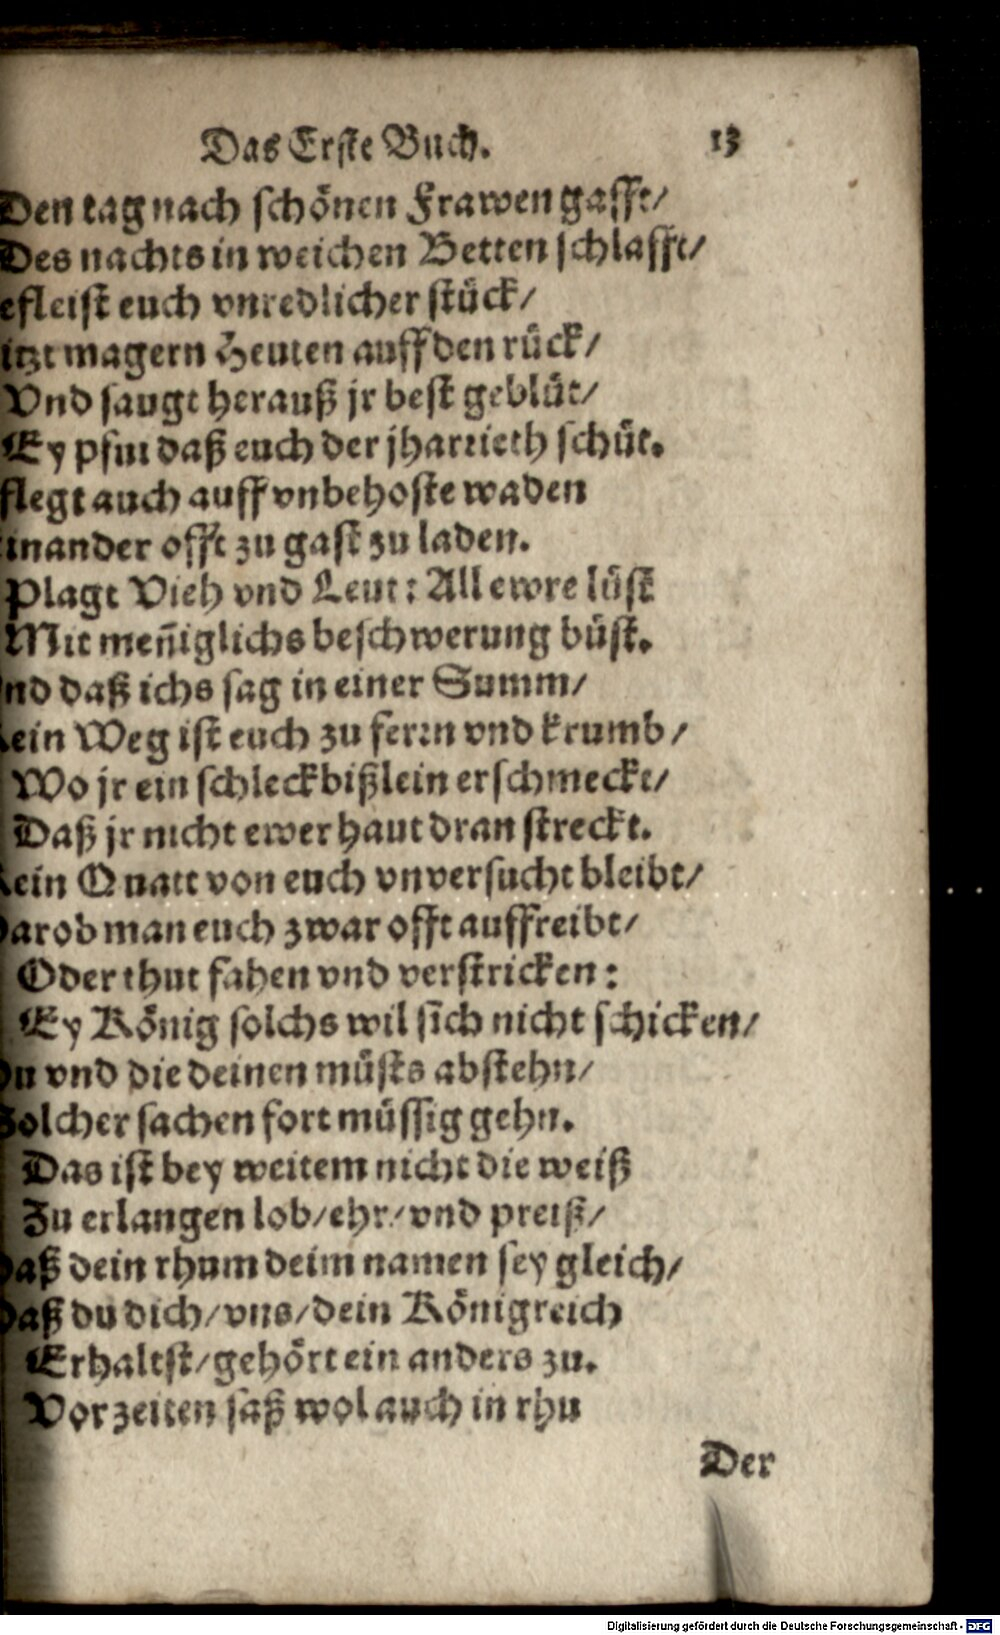 Das Erste Buch. 13
Den tag nach schönen Frawen gafft/
Des nachts in weichen Betten schlafft/
efleist euch vnredlicher stück/
itzt magern Heuten auff den rück/
Vnd saugt herauß jr best geblüt/
Ey pfui daß euch der jharrieth schüt.
flegt auch auff vnbehoste waden
inander offt zu gast zu laden.
Plagt Vieh vnd Leut: All ewre lüst
Mit meñiglichs beschwerung büst.
nd daß ichs sag in einer Summ/
ein Weg ist euch zu ferrn vnd krumb/
Wo jr ein schleckbißlein erschmeckt/
Daß jr nicht ewer haut dran streckt.
ein Quatt von euch vnversucht bleibt/
arob man euch zwar offt auffreibt/
Oder thut fahen vnd verstricken:
Ey König solchs wil sich nicht schicken/
Du vnd die deinen müsts abstehn/
Solcher sachen fort müssig gehn.
Das ist bey weitem nicht die weiß
Zu erlangen lob/ehr/vnd preiß/
Daß dein rhum deim namen sey gleich/
Daß du dich/vns/dein Königreich
Erhaltst/gehört ein anders zu.
Vor zeiten saß wol auch in rhu
Der
Digitalisierung gefördert durch die Deutsche Forschungsgemeinschaft - DFG